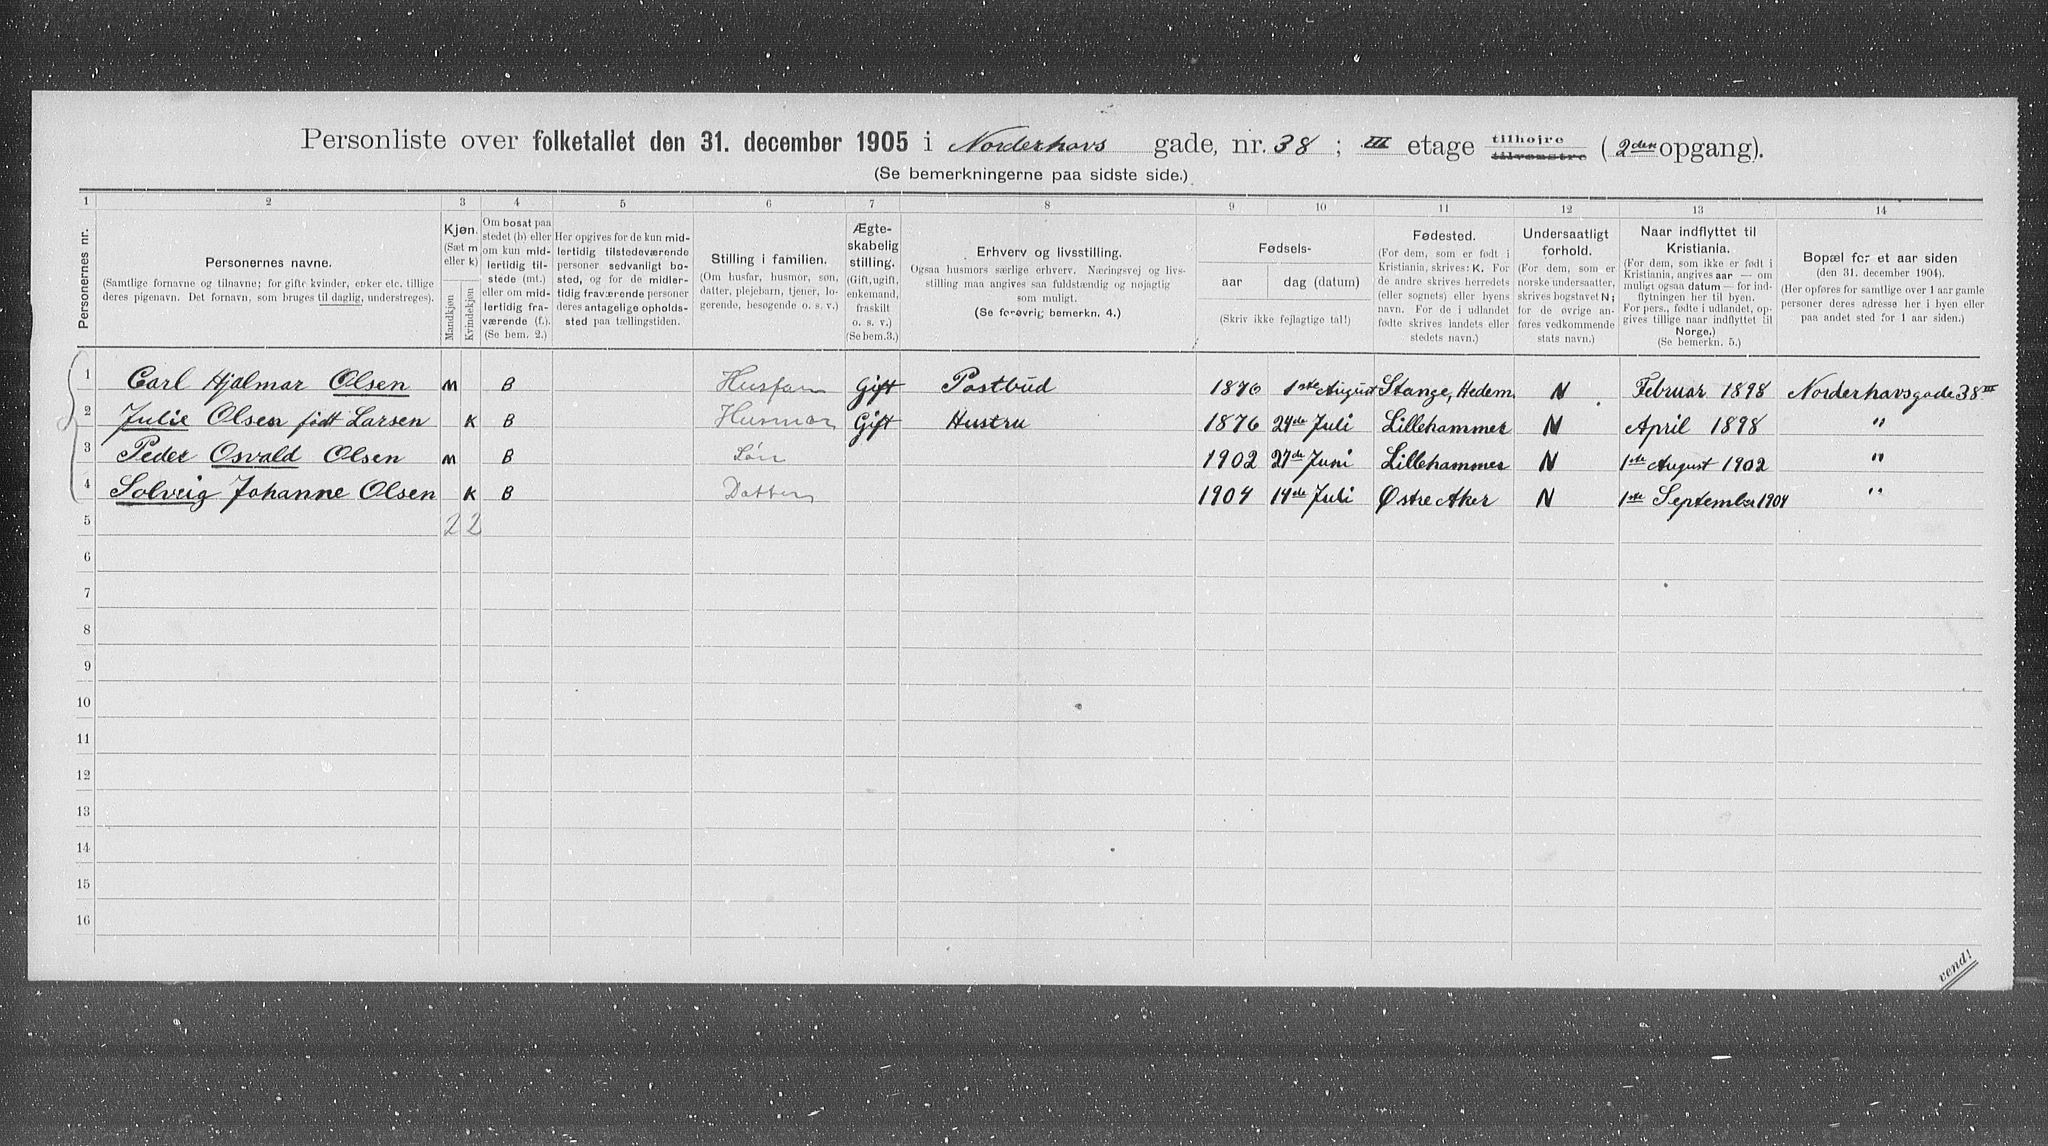 Personliste over folketallet den 31. december 1905 i Norderhovs gade, nr. 38 ; III etage tilhøjre tilvenstre ( 2den opgang).
(Se bemerkningerne paa sidste side.)
1 2 3 4 5 6 7 8 9 10 11 12 13 14
Personernes nr.
Personernes navne.
(Samtlige fornavne og tilnavne; for gifte kvinder, enker etc. tillige
deres pigenavn. Det fornavn, som bruges til daglig, understreges).
Kjøn.
(Sæt m
eller k)
Mandkjøn
Kvindekjøn
Om bosat paa
stedet (b) eller
om kun mid-
lertidig til-
stede (mt.)
eller om mid-
lertidig fra-
værende (f.).
(Se bem. 2.)
Her opgives for de kun mid-
lertidig tilstedeværende
personer sedvanlig bo-
sted, og for de midler-
tidig fraværende personer
deres antagelige opholds-
sted paa tællingstiden.
Stilling i familien.
(Om husfar, husmor, søn,
datter, plejebarn, tjener, lo-
gerende, besøgende o. s. v.)
Ægte-
skabelig
stilling.
(Gift, ugift,
enkemand,
fraskilt
o. s. v.)
(Se bem.3.)
Erhverv og livsstilling.
Ogsaa husmors særlige erhverv. Næringsvej og livs-
stilling maa angives saa fuldstændig og nøjagtig
som muligt.
(Se forøvrig bemerkn. 4.)
Fødsels-
aar dag (datum)
(Skriv ikke fejlagtige tal!)
Fødested.
(For dem, som er født i
Kristiania, skrives: K. For
de andre skrives herredets
(eller sognets) eller byens
navn. For de i udlandet
fødte skrives landets eller
stedets navn.)
Undersaatligt
forhold.
(For dem, som er
norske undersaatter,
skrives bogstavet N;
for de øvrige an-
føres vedkommende
stats navn.)
Naar indflyttet til
Kristiania.
(For dem, som ikke er født i
Kristiania, angives aar — om
muligt ogsaa datum — for ind-
flytningen her til byen.
For pers., fødte i udlandet, op-
gives tillige naar indflyttet til
Norge.)
(Se bemerkn. 5.)
Bopæl for et aar siden
(den 31. december 1904).
(Her opføres for samtlige over 1 aar gamle
personer deres adresse her i byen eller
paa andet sted for 1 aar siden.)
1 Carl Hjalmar Olsen m B Husfar Gift Postbud 1876 1ste August Stange, Hedem. N Februar 1898 Norderhovsgade 38 III
2 Julie Olsen født Larsen K B Husmor Gift Hustru 1876 24de Juli Lillehammer N April 1898 "
3 Peder Osvald Olsen m B Søn 1902 27de Juni Lillehammer N 1ste August 1902 "
4 Solveig Johanne Olsen K B Datter 1904 14de Juli Østre Aker N 1ste September 1904 "
5 2 2
6
7
8
9
10
11
12
13
14
15
16
vend!